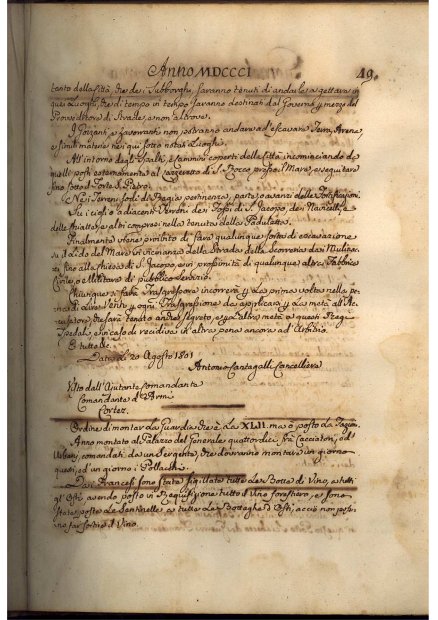 Anno MDCCCI
49.
tanto della Città, che dei Subborghi, saranno tenuti di andarle a gettare in
quei Luoghi, che di tempo in tempo saranno destinati dal Governo, per mezzo del
Provveditore di Strade, e non altrove.
I Giganti e Lavoranti non potranno andare ad escavare Terra, Arena,
e simili materie nei qui sotto notati Luoghi.
All'intorno degli Spalti, e Cammini coperti della Città incominciando da
quello posto esternamente al Lazzeretto di S. Rocco presso il Mare, e seguitare
fino sotto il Forte S. Pietro.
Nei Terreni sodi di Regia pertinenza, parte o avanzi delle Fortificazioni.
Su i cigli o adiacenti Terreni dei Fossi di S. Jacopo, dei Navicelli, e
delle Spiattate, e altri compresi nella tenuta della Paduletta.
Finalmente viene proibito di fare qualunque sorta di escavazione
su il Lido del Mare in vicinanza della Strada della Scorreria dai Mulinacci
fino alla Chiesa di S. Jacopo, e in prossimità di qualunque altra Fabbrica
Civile, o Militare di pubblico servizio.
Chiunque a fare Trasgressore incorrerà per la prima volta nella pe-
na di Lire Venti per ogni Trasgressione da applicarsi per la metà all'Ac-
cusatore, che sarà tenuto anche segreto, e per l'altra metà a questi Regi
Spedali, e in caso di recidiva in altra pena ancora ad Arbitrio.
E tutto &c.
Data Li 20 Agosto 1801
Antonio Cantagalli Cancelliere
Visto dall'Ajutante Comandante
Comandante d'Armi
Cortez.
Ordine di montar la Guardia, che è La XLII. ma o posto La
Anno montato al Palazzo del Generale quattordici fra Cacciatori, ed
Urbani, comandati da un Sergente, che dovranno montare un giorno
questi, ed un giorno i Pollacchi.
Dai Francesi sono state sigillate tutte Le Botte di Vino, a tutti
gl'Osti, avendo posto in Requisizione tutto il Vino forestiero, e sono
state poste Le Sentinelle a tutte Le Botteghe d'Osti, acciò non possi-
no far sortire il Vino.